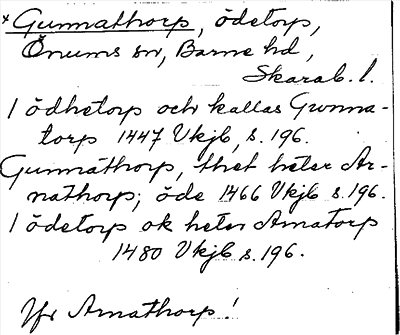 * Gunnathorp, ödetorp,
Önums sn, Barne hd,
Skarab. l.
1 ödhetorp och kallas Gunna-
torp 1447 Vkjb, s. 196.
Gunnathorp, thet heter Ar-
nathorp; öde 1466 Vkjb s. 196.
1 ödetorp ok heter Arnatorp
1480 Vkjb s. 196.
Jfr Arnathorp!